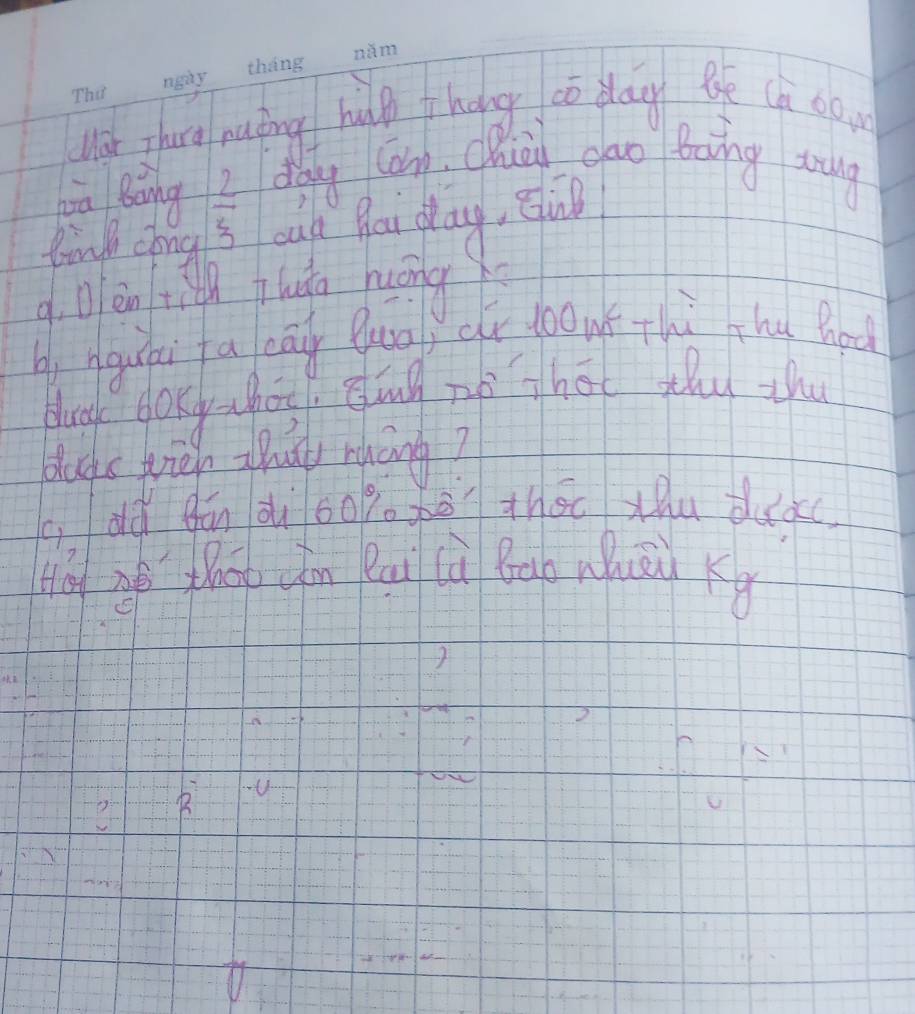 Thứ ngày tháng năm
Một thửa ruộng hình thang có đáy bé là 60m
và bằng 2/3 đáy lớn. Chiều cao bằng trung
bình cộng của hai đáy. Tính
a, Diện tích thửa ruộng
b, người ta cấy lúa, cứ 100m² thì thu hoạch
được 60kg thóc. Tính số thóc thu thu
được trên thửa ruộng?
c, đã bán đi 60% số thóc thu được.
Hỏi số thóc còn lại là bao nhiêu kg